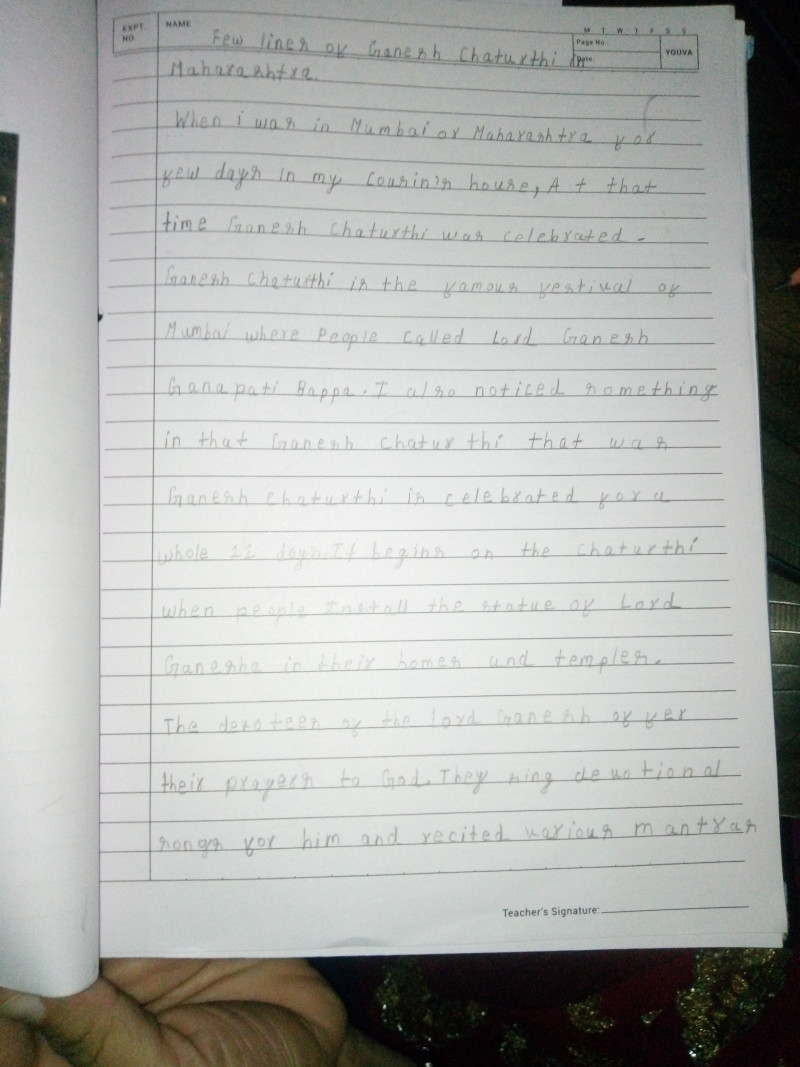 EXPT. NO.
NAME
M T W T F S S
Page No.:
Date:
YOUVA
Few lines of Ganesh Chaturthi in
Maharashtra.
When i was in Mumbai or Maharashtra for
few days in my Cousin's house, At that
time Ganesh Chaturthi was celebrated -
Ganesh Chaturthi is the famous festival of
Mumbai where People Called Lord Ganesh
Ganapati Bappa. I also noticed something
in that Ganesh chaturthi that was
Ganesh chaturthi is celebrated for a
whole 11 days. It begins on the chaturthi
when people Install the statue of Lord
Ganesha in their homes and temples.
The devotees of the lord Ganesh offer
their prayers to God. They sing devotional
songs for him and recited various mantras
Teacher's Signature: